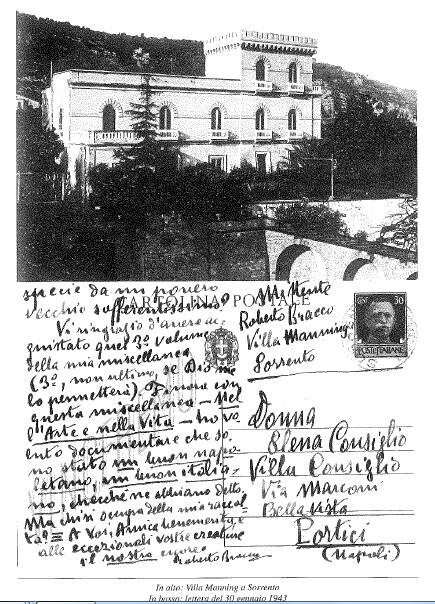 specie da un povero
vecchio sofferentissimo!
Vi ringrazio d'avere ac-
quistato quel 3º volume
della mia miscellanea
(3º, non ultimo, se Dio me
lo permetterà). Finora con
questa miscellanea – Nel
l'Arte e nella Vita – ho vo-
luto documentare che so-
no stato un buon napo-
letano, un buon italia-
no, checchè ne abbiano detto.
Ma chi si occupa della mia raccol-
ta? = A Voi, Amica benemerita, e
alle eccezionali vostre creature
il nostro cuore.
Roberto Bracco
CARTOLINA POSTALE
Mittente
Roberto Bracco
Villa Manning
Sorrento
CENT. 30
POSTE ITALIANE
Donna
Elena Consiglio
Villa Consiglio
Via Marconi
Bellavista
Portici
(Napoli)
In alto: Villa Manning a Sorrento
In basso: lettera del 30 gennaio 1943